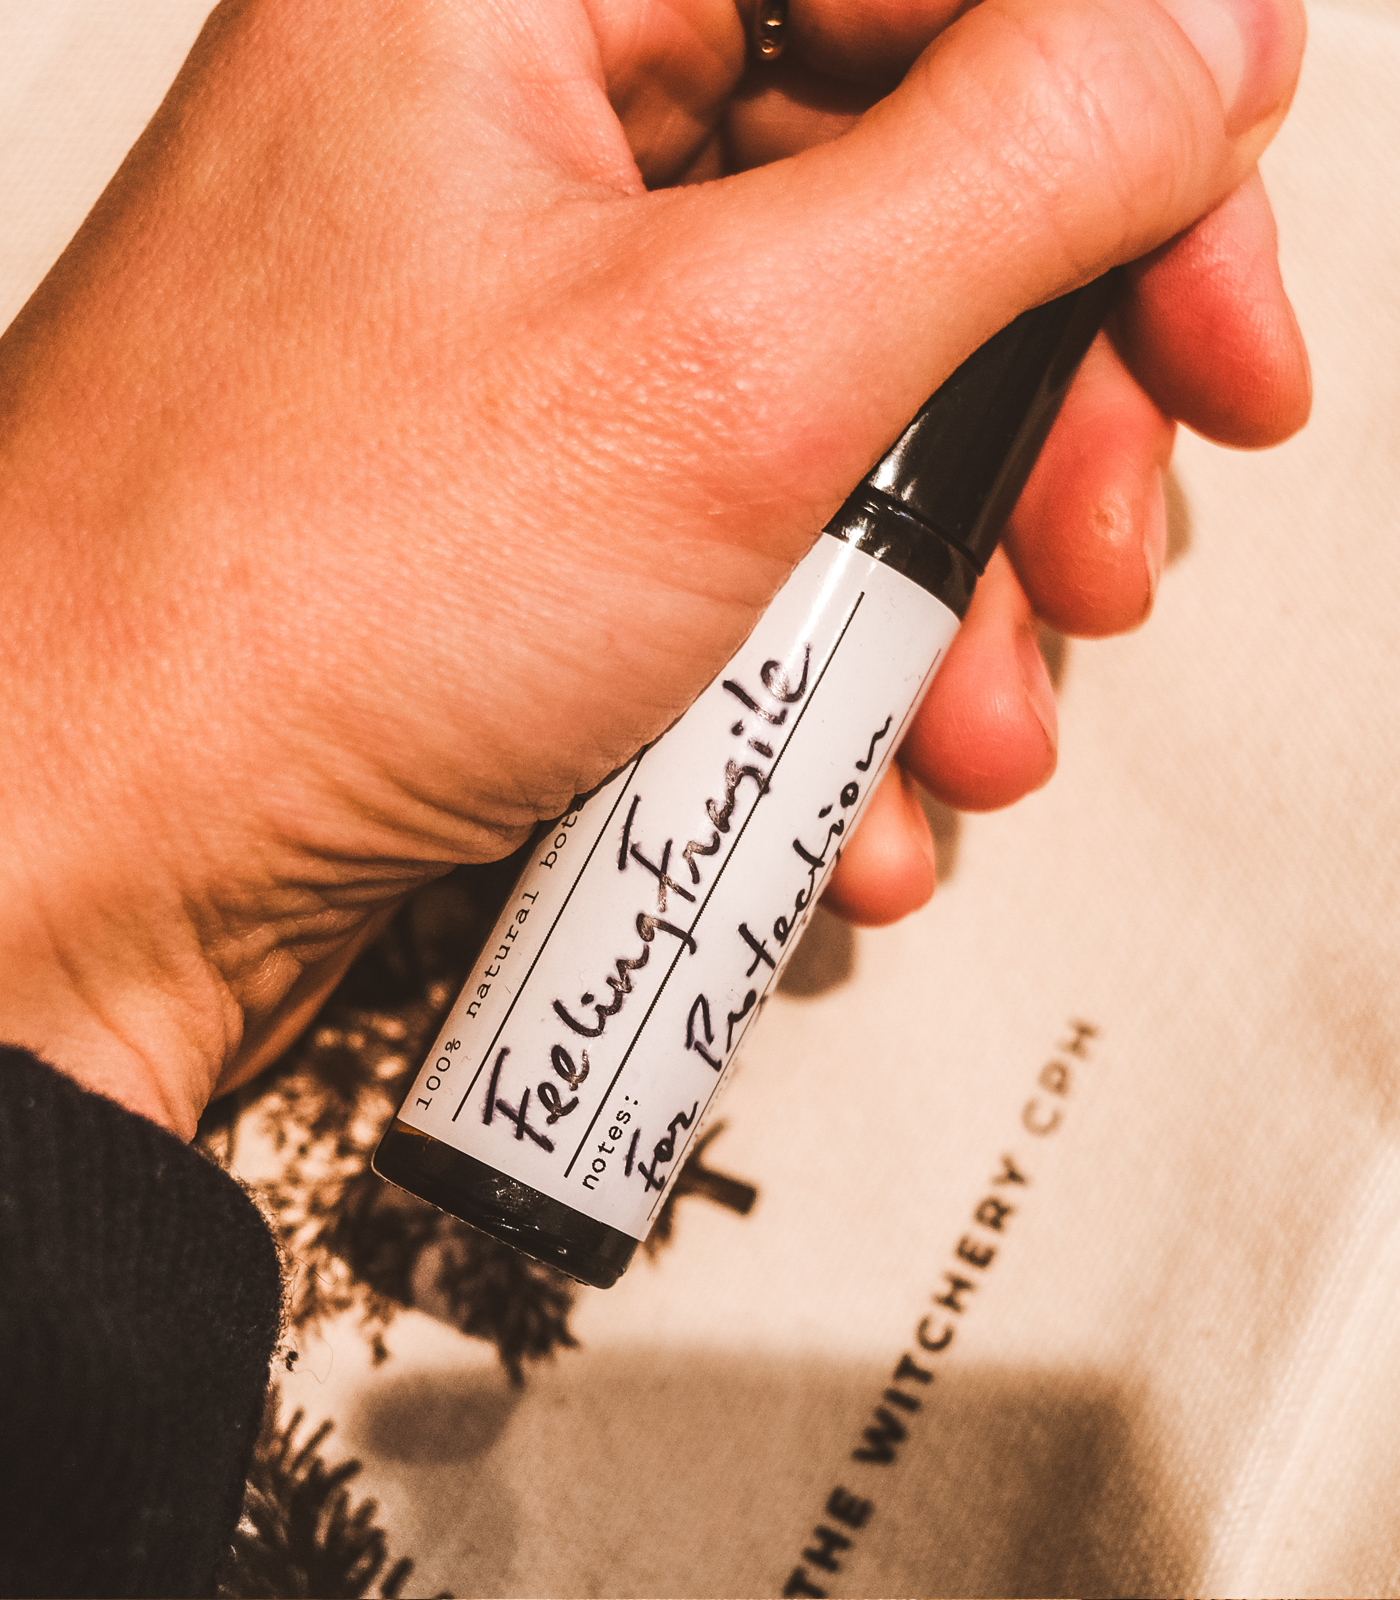 100% natural
Feeling Fragile
notes:
For Protection
THE WITCHERY CPH